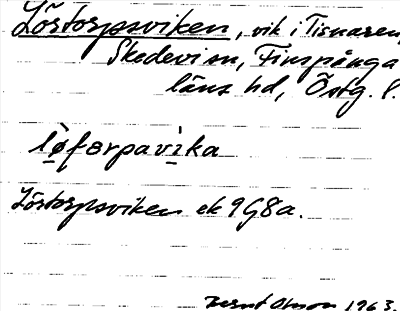 Löstorpsviken, vik i Tisnaren,
Skedevi sn, Finspånga
läns hd, Östg. l.
löfǝrpavika
Löstorpsviken ek 9G8a.
Bernt Olsson 1963.